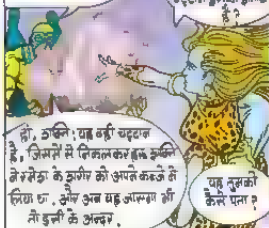 है ?
हां, शक्ति ! यह वही चट्टान
है, जिसमें से निकलकर इस शक्ति
ने रमेश के शरीर को अपने कब्जे में
लिया था. और अब यह जाएगा भी
तो इसी के अन्दर.
यह तुमको
कैसे पता ?